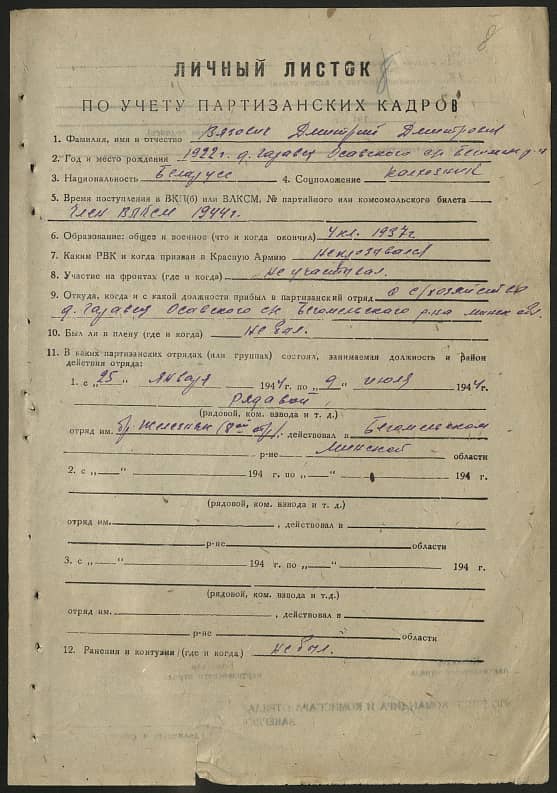 8
8
ЛИЧНЫЙ ЛИСТОК
ПО УЧЕТУ ПАРТИЗАНСКИХ КАДРОВ
1. Фамилия, имя и отчество Вязович Дмитрий Дмитрович
2. Год и место рождения 1922 г. д. Осавского с/с
3. Национальность Беларусс 4. Соцположение колхозник
5. Время поступления в ВКП(б) или ВЛКСМ, № партийного или комсомольского билета
Член ВЛКСМ 1944 г.
6. Образование: общее и военное (что и когда окончил) 4 кл. 1937 г.
7. Каким РВК и когда призван в Красную Армию
8. Участие на фронтах (где и когда) Не участвовал.
9. Откуда, когда и с какой должности прибыл в партизанский отряд с с/хозяйства
д. Осавского с/с Бегомельского р-на минск обл.
10. Был ли в плену (где и когда) Не был.
11. В каких партизанских отрядах (или группах) состоял, занимаемая должность и район
действия отряда:
1. с „25" Января 1944 г. по „9 июля 1944 г.
Рядавой
(рядовой, ком. взвода и т. д.)
отряд им. бр. Железняк действовал в Бегомельском
р-не Минской области
2. с „—" 194 г. по „—" 194 г.
(рядовой, ком. взвода и т. д.)
отряд им. , действовал в
р-не области
3. с „—" 194 г. по „—" 194 г.
(рядовой, ком. взвода и т. д.)
отряд им. , действовал в
р-не области
12. Ранения и контузии (где и когда) не был.